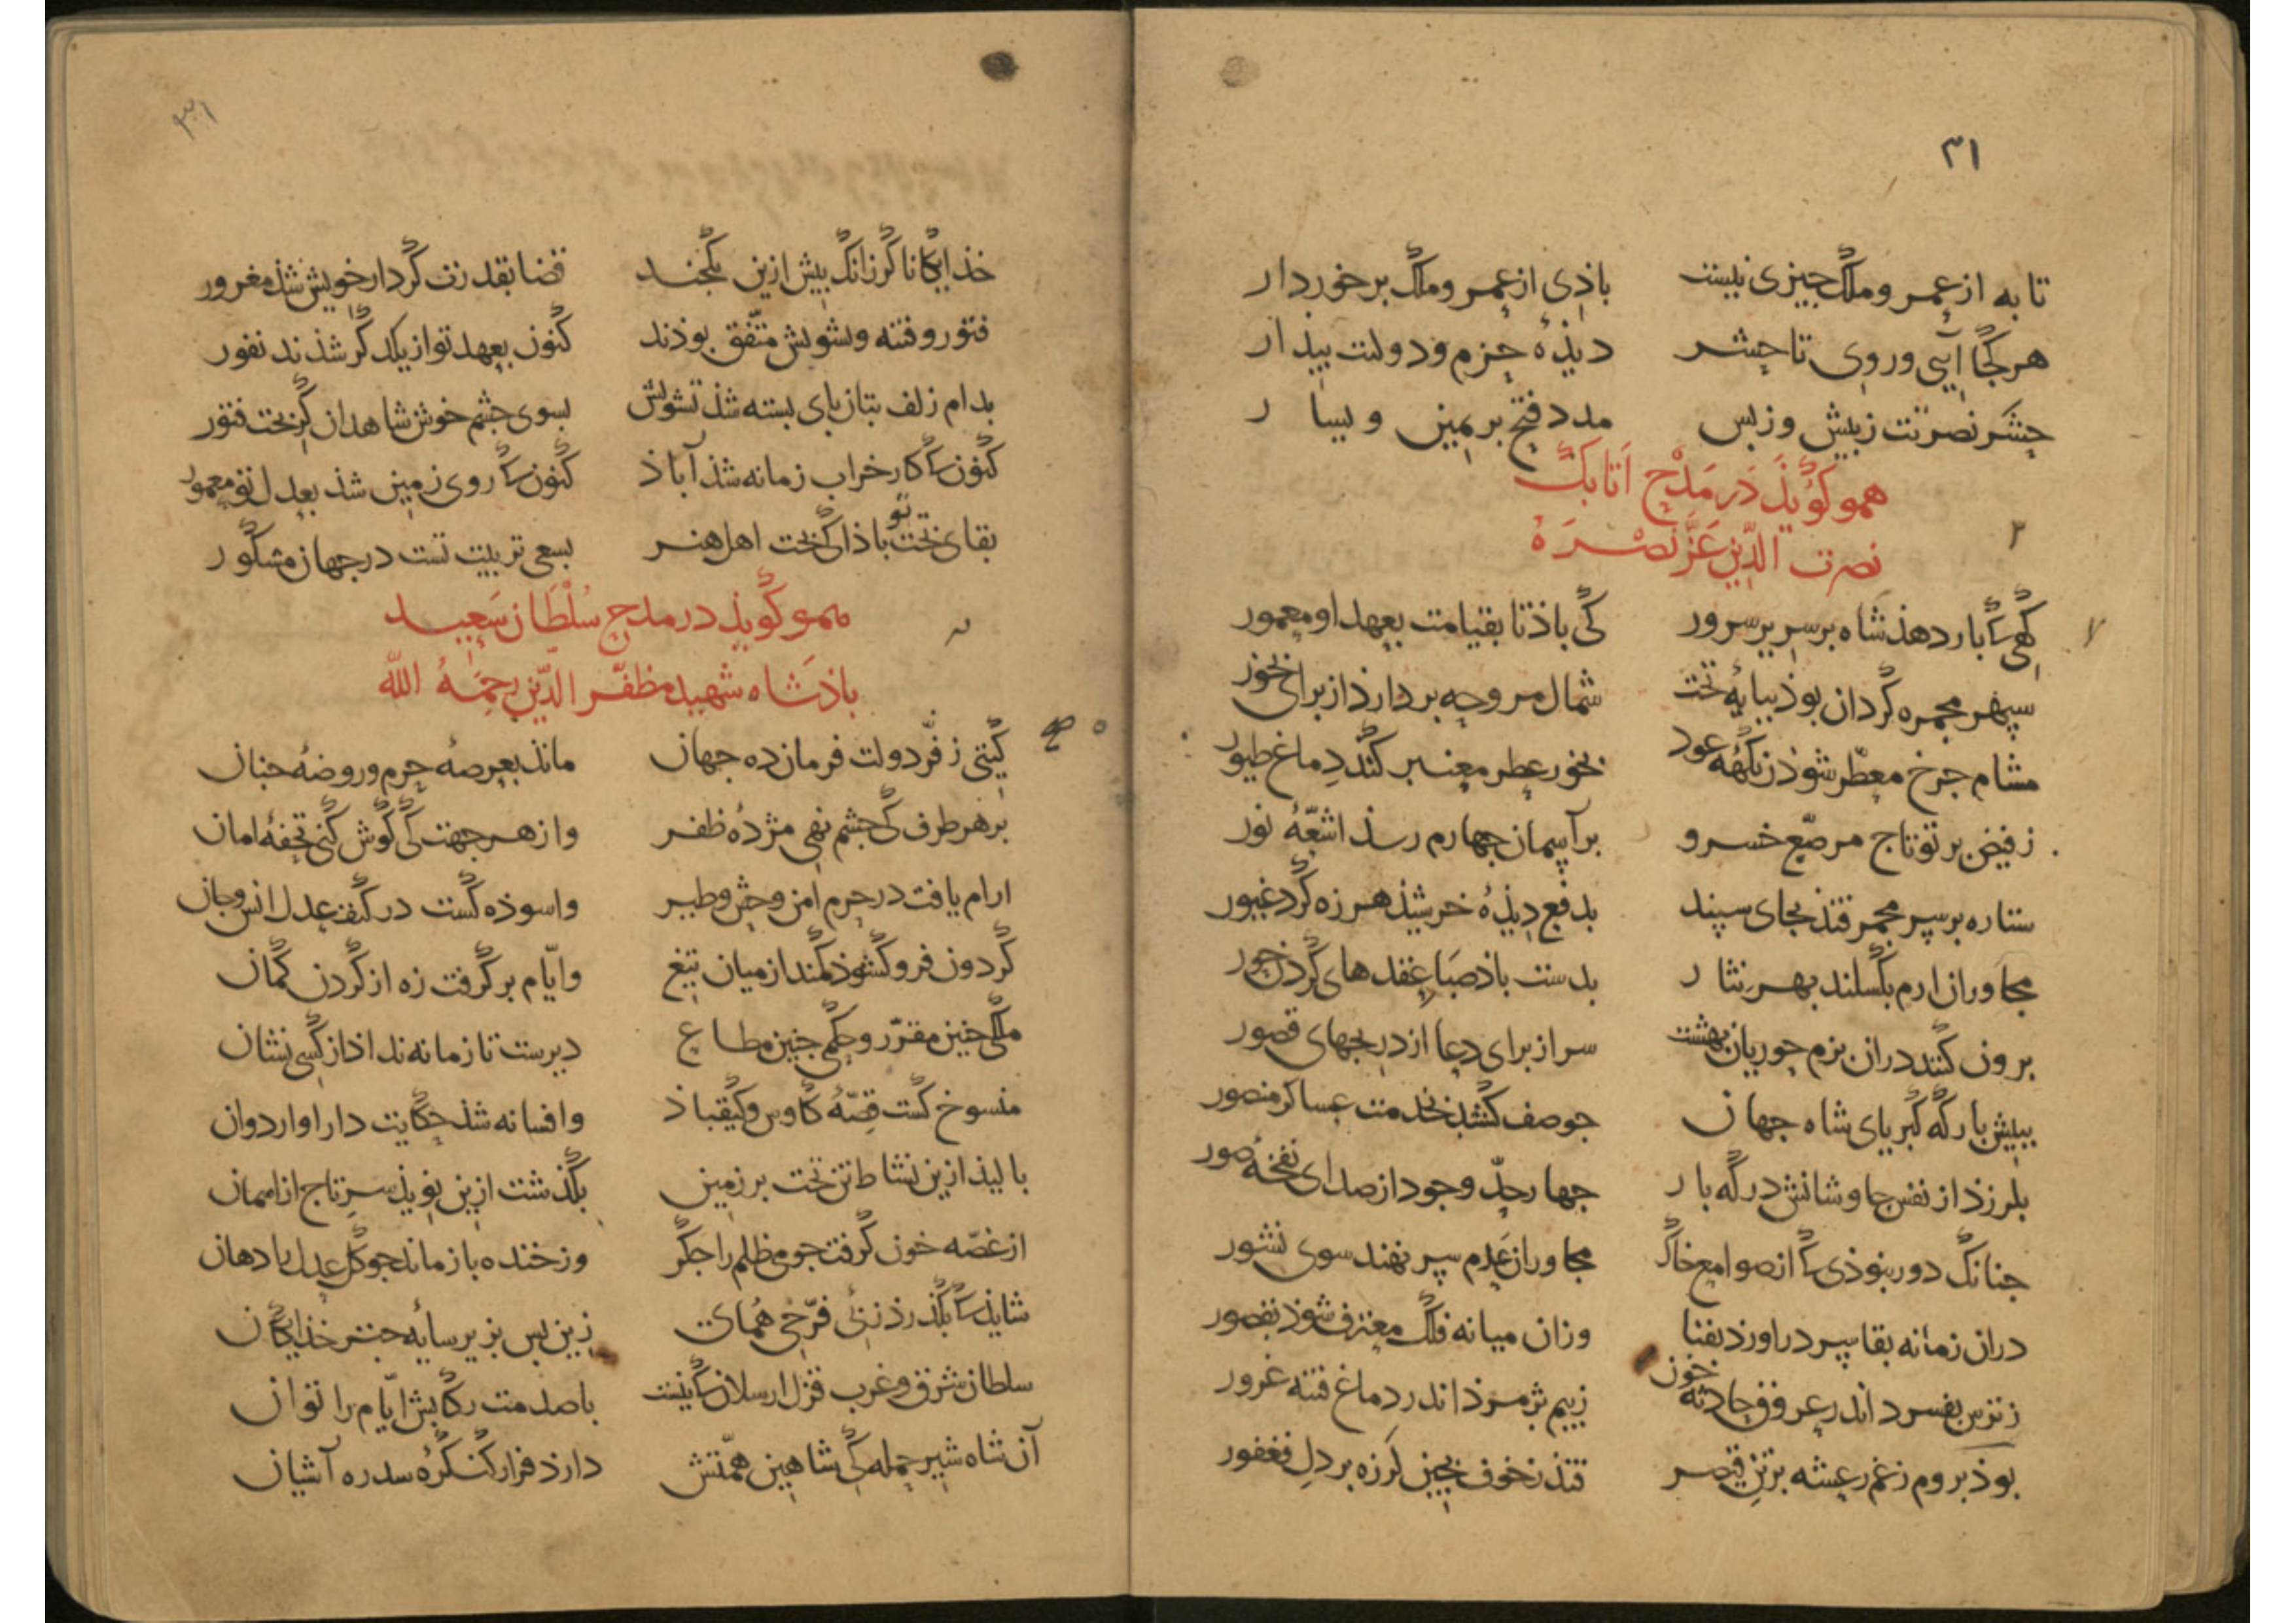 ۳۱
تا به از عمر و ملک چیزی نیست باذی از عمر و ملک برخوردار
هر کجا آیی و روی تا حشر دیذهٔ حزم و دولت بیدار
حشر نصرتت ز پیش و ز پس مدد فتح بر یمین و یسار
همو کویذ در مدح اتابک
نصرت الدین عز نصره
۲
کهی ک بار دهذ شاه بر سریر سرور کی باذ تا بقیامت بعهد او معمور
سپهر مجمره کردان بوذ ببایهٔ تخت شمال مروحه بردارذ از برای بخور
مشام جرخ معطر شوذ ز نکهه عود بخور عطر معنبر کند دماغ طیور
ز فیض برتو تاج مرصع خسرو بر آسمان جهارم رسذ اشعهٔ نور
ستاره بر سر مجمر فتذ بجای سپند بدفع دیذهٔ خرشیذ هرزه کرد غیور
مجاوران ارم بکسلند بهر نثار بدست باذ صبا عقدهای کردن حور
برون کنند دران بزم حوریان بهشت سر از برای دعا از دریجهای قصور
ببیش بارکه کبریای شاه جهان جو صف کشذ بخدمت عساکر منصور
بلرزذ از نفس جاوشانش در که بار جهار حد وجود از صدای نفخهٔ صور
جنانک دور بنوذی ک از صوامع خاک مجاوران عدم سر نهند سوی نشور
دران زمانه بقا سر در اورذ بفنا وزان میانه فلک معترف شوذ بقصور
ز ترس بفسرد اندر عروق حادثه خون ز بیم بژمرذ اندر دماغ فتنه غرور
بوذ بروم ز غم رعشه بر تن قیصر فتذ ز خوف بجین لرزه بر دل فغفور
۳۱
خذایکانا کر زانک بیش ازین یکجند قضا بقدرت کردار خویش شذ مغرور
فتور و فتنه و تشویش متفق بوذند کنون بعهد تو از یکدکر شذند نفور
بدام زلف بتان بای بسته شذ تشویش بسوی جشم خوش شاهدان کریخت فتور
کنون ک کار خراب زمانه شذ آباذ کنون ک روی زمین شذ بعدل تو معمور
بقای تخت تو باذا کی تخت اهل هنر بسعی تربیت تست در جهان مشکور
همو کویذ در مدح سلطان سعید
باذشاه شهید مظفر الدین رحمه الله
کیتی ز فر دولت فرمان ده جهان مانذ بعرصهٔ حرم و روضهٔ جنان
بر هر طرف کی جشم نهی مژدهٔ ظفر وز هر جهت کی کوش کنی تحفهٔ امان
ارام یافت در حرم امن وحش و طیر واسوذه کشت در کنف عدل انس و جان
کردون فرو کشوذ کمند از میان تیغ وایام بر کرفت زه از کردن کمان
ملکی جنین مقرر و حکمی جنین مطاع دیرست تا زمانه نداذ از کسی نشان
منسوخ کشت قصهٔ کاوس و کیقباذ وافسانه شذ حکایت دارا و اردوان
بالیذ ازین نشاط تن تخت بر زمین بکذشت ازین نویذ سر تاج از اسمان
از غصه خون کرفت جو می ظلم را جکر وز خنده باز ماند جو کل عدل را دهان
شایذ ک بکذرذ زنی فر همای زین بس بزیر سایهٔ جتر خذایکان
سلطان شرق و غرب قزل ارسلان ک نیست با صدمت رکابش ایام را توان
آن شاه شیر حمله کی شاهین همتش دارذ فراز کنکرهٔ سدره آشیان